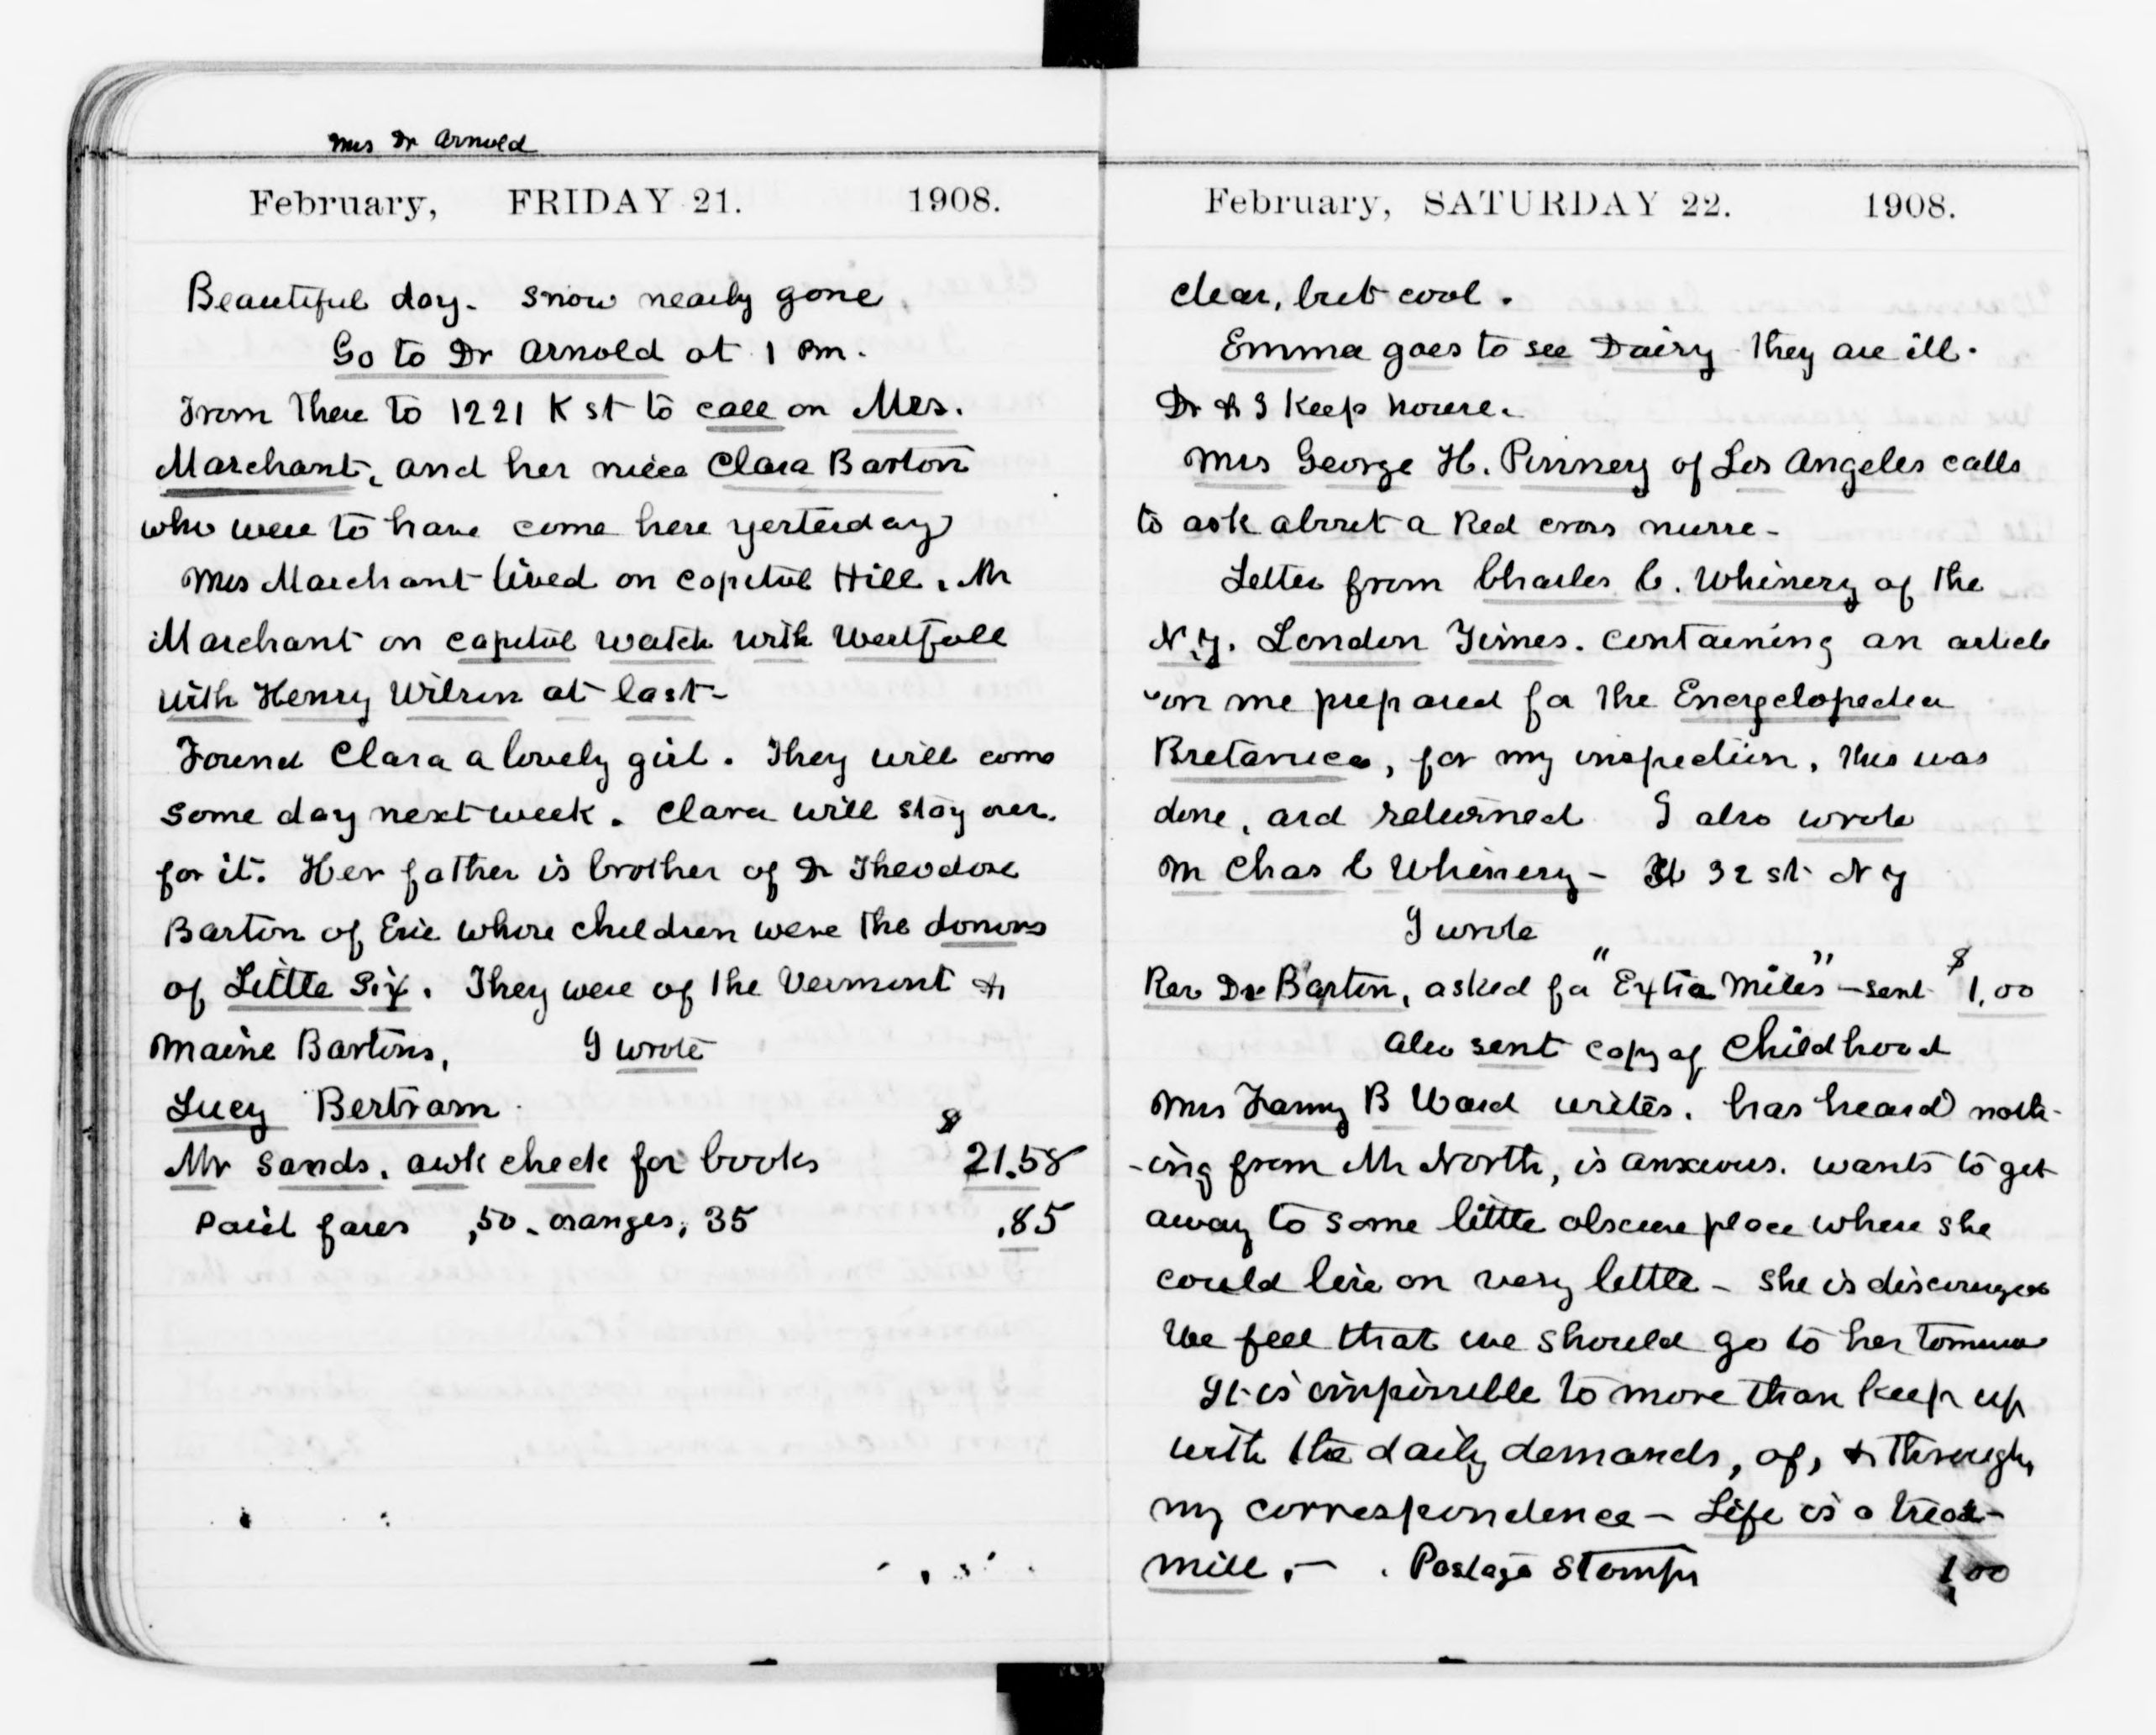 Mrs Dr Arnold
February, FRIDAY 21. 1908.
Beautiful day. Snow nearly gone,
Go to Dr Arnold at 1 Pm.
From there to 1221 K st to call on Mrs.
Marchant, and her niece Clara Barton
who were to have come here yesterday
Mrs Marchant lived on Capitol Hill. Mr
Marchant on Capitol Watch with Westfall
with Henry Wilson at last-
Found Clara a lovely girl. They will come
some day next week. Clara will stay over.
for it. Her father is brother of Dr Theodore
Barton of Erie whose children were the donors
of Little Six. They were of the Vermont &
Maine Bartons, I wrote
Lucy Bertram.
Mr Sands. awk check for books $21.58
Paid fares ,50. oranges, 35 .85
February, SATURDAY 22. 1908.
clear, but cool.
Emma goes to see Dairy They are ill.
Dr & I Keep house.
Mrs George H. Pinney of Los Angeles calls
to ask about a Red cross nurse-
Letter from Charles C. Whinery of the
N.Y. London Times. containing an article
on me prepared for the Encyclopedia
Bretanica, for my inspection, this was
done, and returned I also wrote
M Chas C Whinery - 32 st N Y
I wrote
Rev Dr Barton, asked for "Extra Miles" - sent $1,00
Also sent copy of Childhood
Mrs Fanny B Ward writes. has heard noth-
-ing from Mr North, is anxious. wants to get
away to some little obscure place where she
could live on very little - She is discouraged
We feel that we should go to her tomorrow
It is impossible to more than keep up
with the daily demands, of, & through,
my correspondence - Life is a tread-
mill. - . Postage Stamps 1,00